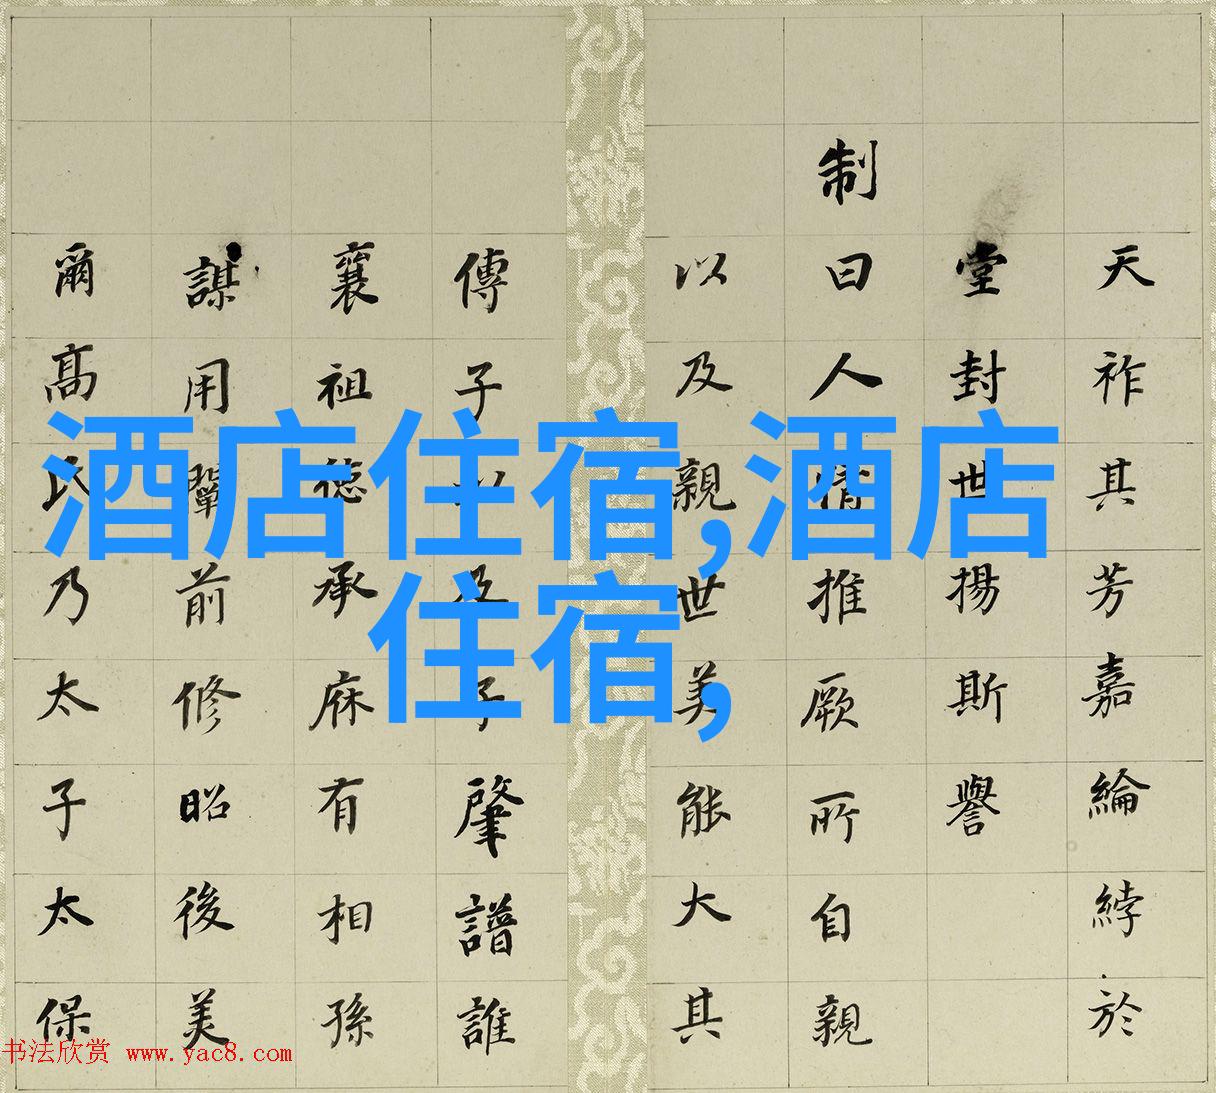 天祚其芳嘉綸綍於
堂封世揚斯譽
制曰人情推厥所自親
以及親世美能大其
傳子以及子肇譜誰
襄祖德承庥有相孫
謀用鞏前修昭後美
爾高氏乃太子太保
酒店住宿,酒店
住宿,
书法欣赏 www.yac8.com